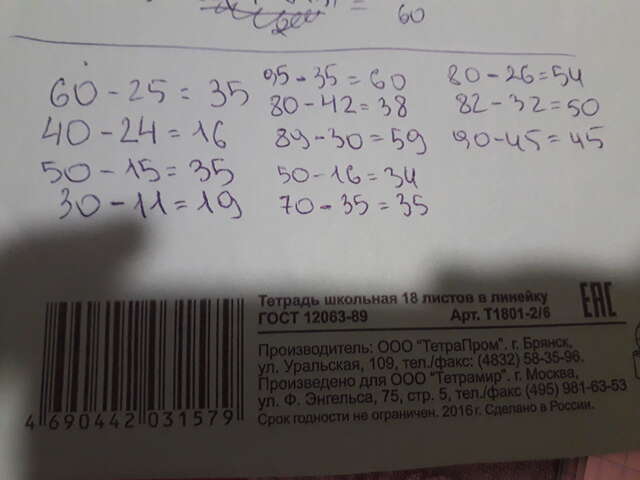 = 60
60 - 25 = 35
40 - 24 = 16
50 - 15 = 35
30 - 11 = 19
95 - 35 = 60
80 - 42 = 38
89 - 30 = 59
50 - 16 = 34
70 - 35 = 35
80 - 26 = 54
82 - 32 = 50
90 - 45 = 45
4 690442 031579
Тетрадь школьная 18 листов в линейку
ГОСТ 12063-89 Арт. Т1801-2/6
ЕАС
Производитель: ООО "ТетраПром". г. Брянск,
ул. Уральская, 109, тел./факс: (4832) 58-35-96.
Произведено для ООО "Тетрамир". г. Москва,
ул. Ф. Энгельса, 75, стр. 5, тел./факс (495) 981-63-53
Срок годности не ограничен. 2016 г. Сделано в России.